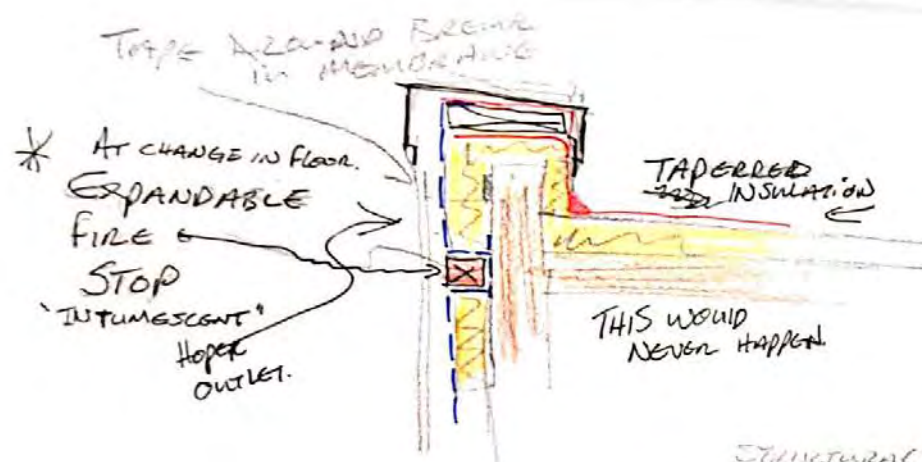 TAPE AROUND BREAK
IN MEMBRANE
* AT CHANGE IN FLOOR.
EXPANDABLE
FIRE
STOP
"INTUMESCENT"
HOPER
OUTLET.
TAPERRED
INSULATION
THIS WOULD
NEVER HAPPEN.
STRUCTURAL